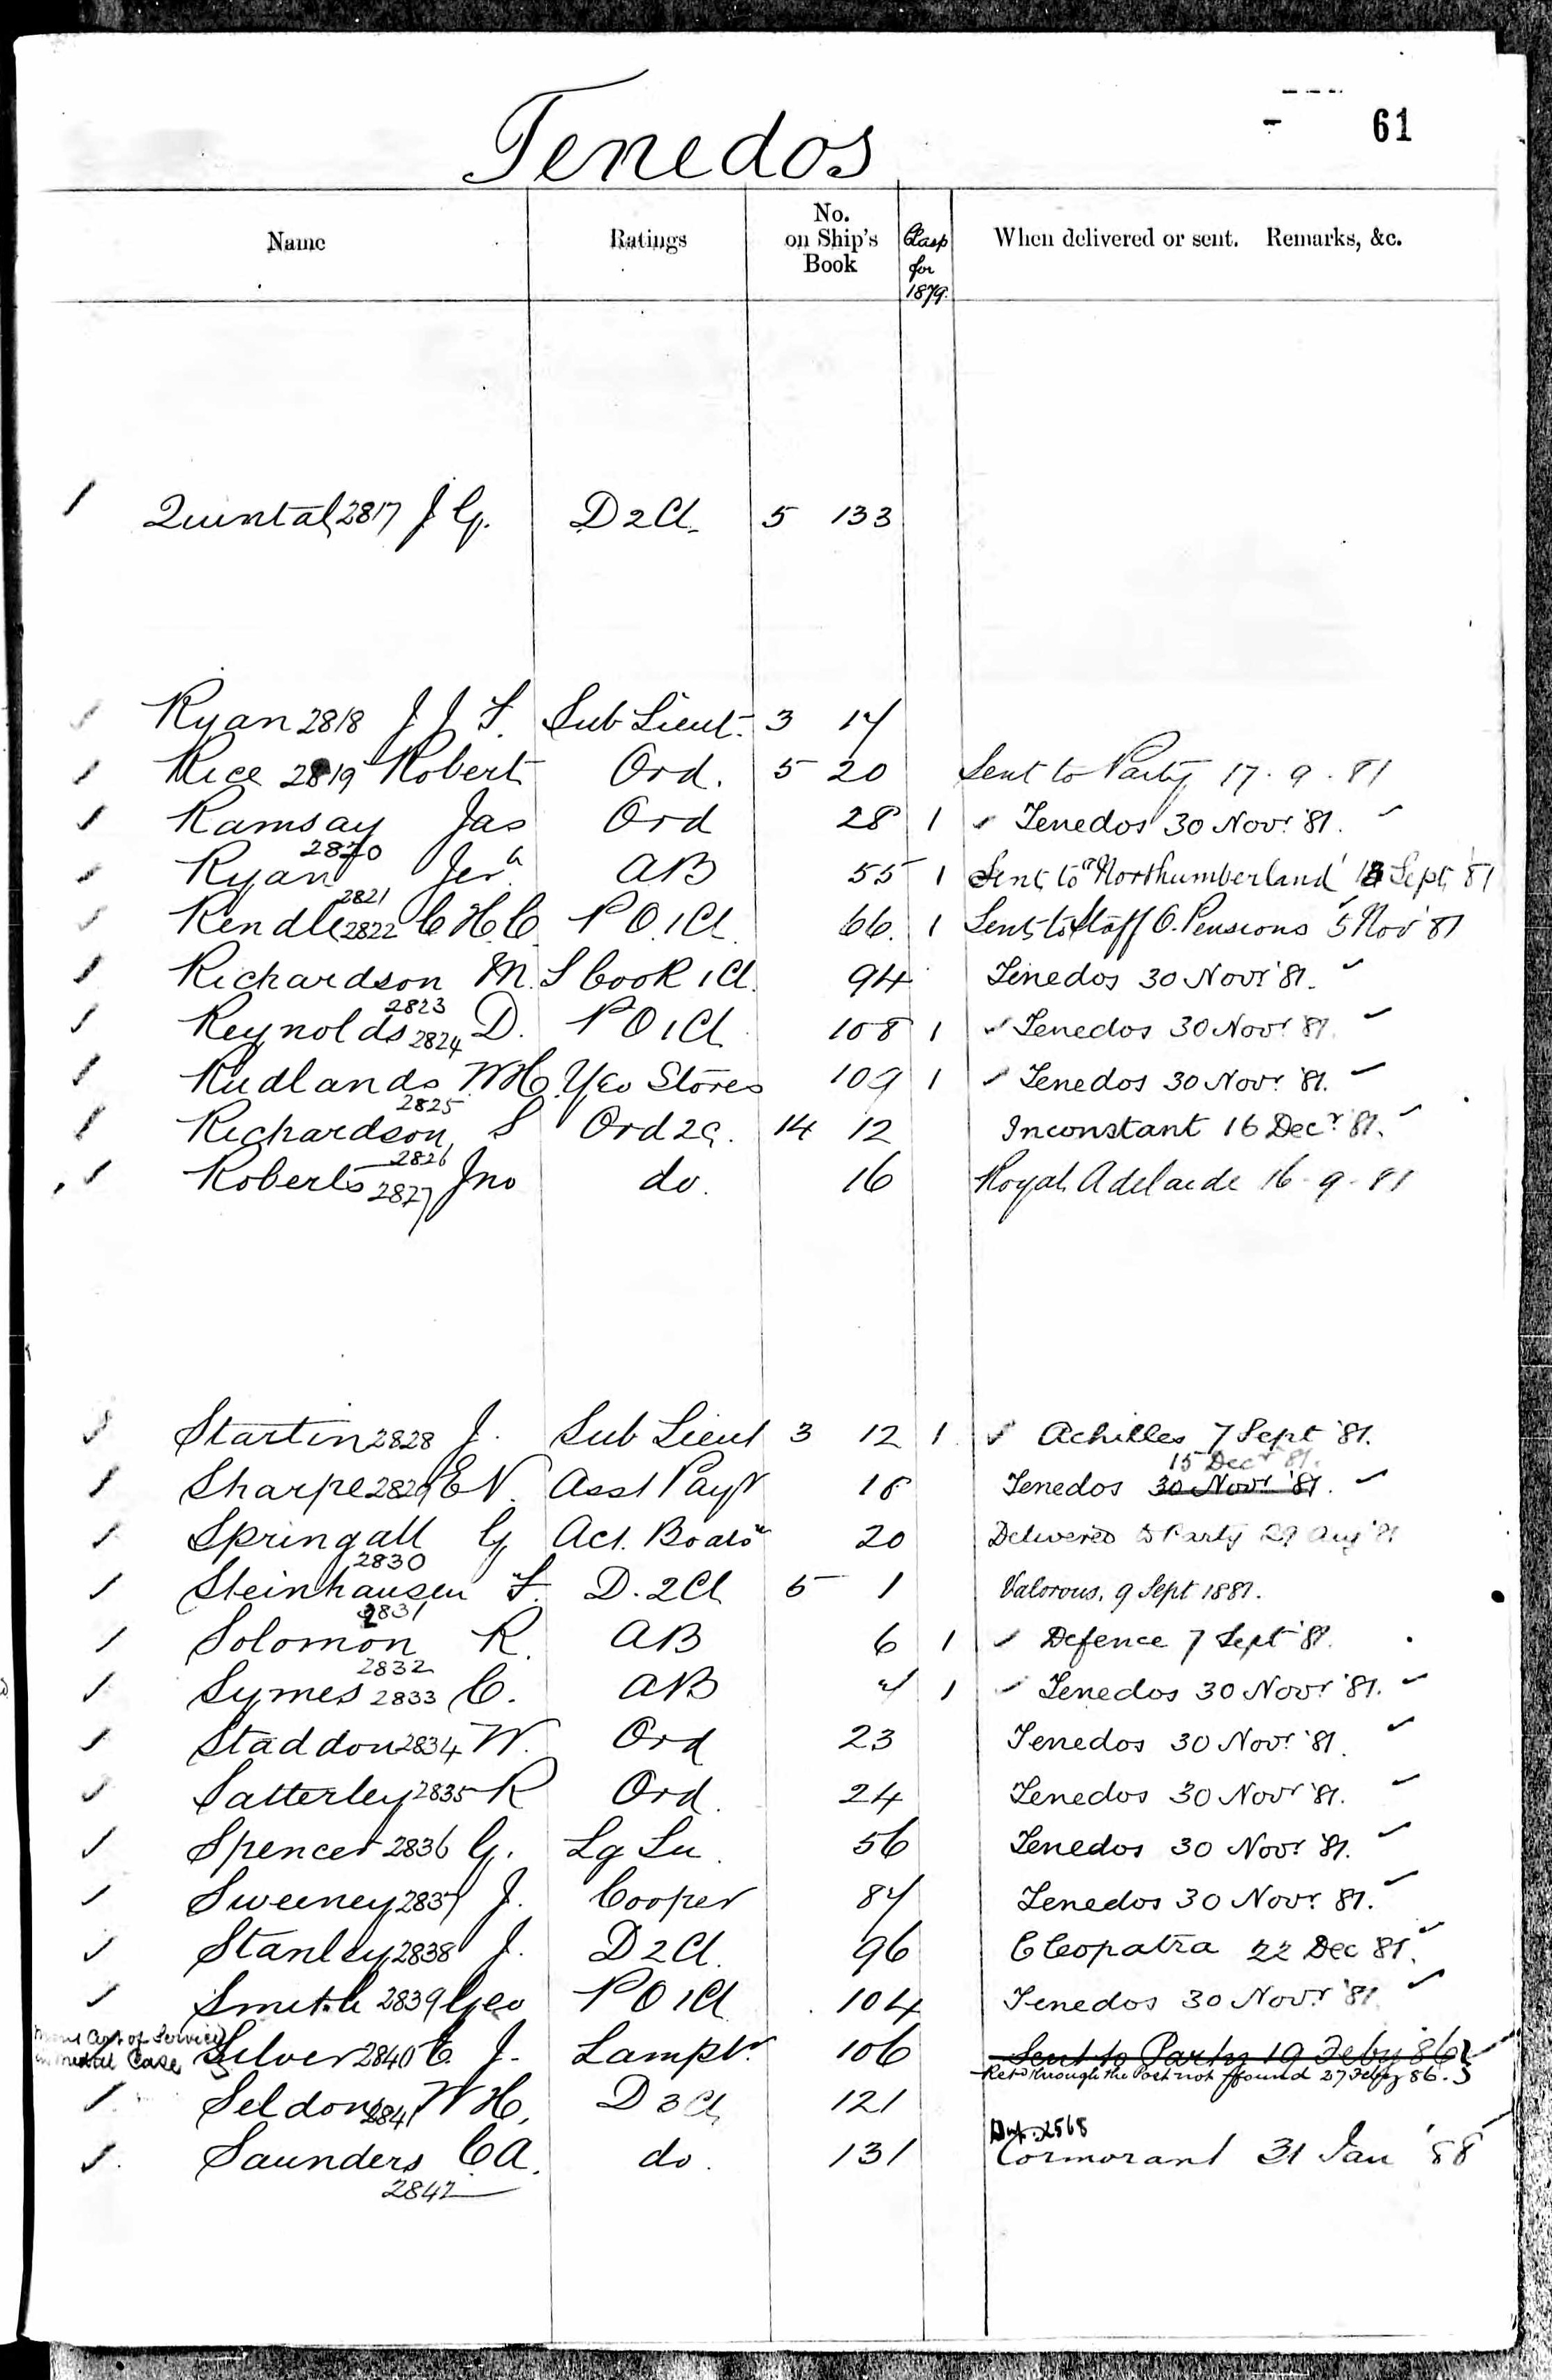 61
Tenedos
Name Ratings No. on Ship's Book Clasp for 1879. When delivered or sent. Remarks, &c.
Quintal 2817 J G. D 2 Cl. 5 133
Ryan 2818 J J S. Sub Lieut. 3 14
Rice 2819 Robert Ord. 5 20 Sent to Party 17.9.81
Ramsay 2820 Jas Ord 28 1 Tenedos 30 Novr '81.
Ryan 2821 Jerh AB 55 1 Sent to "Northumberland" Sept 81
Rendle 2822 C H C P O 1 Cl. 66. 1 Sent to Staff O. Pensions 5 Nov 81
Richardson 2823 M. S Cook 1 Cl. 94 Tenedos 30 Novr '81.
Reynolds 2824 D. P O 1 Cl 108 1 Tenedos 30 Novr '81
Rudlands 2825 W H. Yeo Stores 109 1 Tenedos 30 Novr '81.
Richardson, 2826 S Ord 2 C. 14 12 Inconstant 16 Decr '81.
Roberts 2827 Jno do. 16 Royal Adelaide 16-9-81
Startin 2828 J. Sub Lieut 3 12 1 Achilles 7 Sept '81.
15 Decr 81.
Sharpe 2829 E N. Asst Payr 18 Tenedos 30 Novr '81.
Springall 2830 G Act. Boatsn 20 Delivered to Party 29 Aug '81
Steinhausen 2831 F. D. 2 Cl 5 1 Valorous, 9 Sept 1881.
Solomon 2832 R. AB 6 1 Defence 7 Sept '81.
Symes 2833 C. AB 1 Tenedos 30 Novr '81.
Staddon 2834 W. Ord 23 Tenedos 30 Novr '81.
Satterley 2835 R Ord. 24 Tenedos 30 Novr '81.
Spencer 2836 G. Lg Sea. 56 Tenedos 30 Novr '81.
Sweeney 2837 J. Cooper 84 Tenedos 30 Novr 81.
Stanley 2838 J. D 2 Cl. 96 Cleopatra 22 Dec 81.
Smith 2839 Geo P O 1 Cl 104 Tenedos 30 Novr '81
of Service
medal Case Silver 2840 C. J. Lampr. 106 Sent to Party 19 Feby '86
Retd through the Post not found 27 Feby 86.
Seldon 2841 W H. D 3 Cl, 121
Dup. 2568
Saunders 2842 C A. do. 131 Cormorant 31 Jan '88